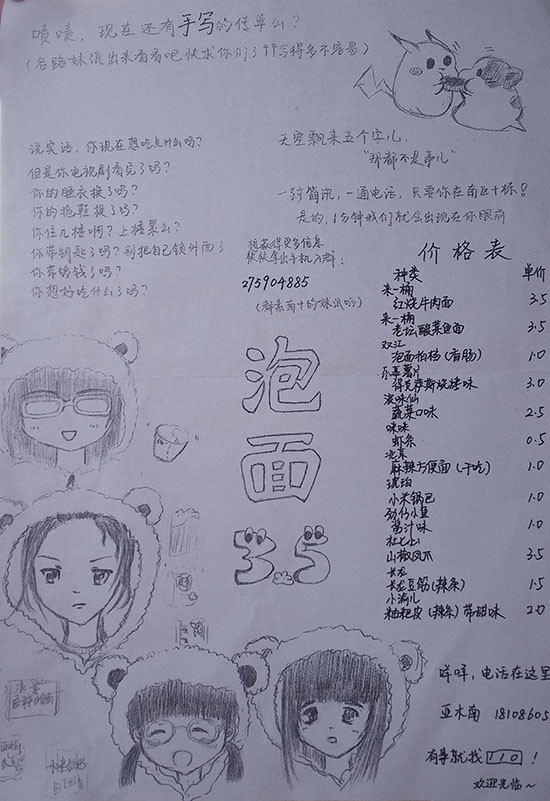 啧啧，现在还有手写的传单么？
（各路妹纸出来看看吧 快求你们了 咱写得多不容易）
说实话，你现在想吃点什么吗？
但是你电视剧看完了吗？
你的睡衣换了吗？
你的拖鞋换了吗？
你住几楼啊？上楼累么？
你带钥匙了吗？别把自己锁外面了
你带够钱了吗？
你想好吃什么了吗？
天空飘来五个字儿，
“那都不是事儿”
一封简讯，一通电话，只要你在南区十栋！
是的，1分钟我们就会出现在你眼前
想获得更多信息
快快拿出手机入群：
275904885
（群素南十的妹纸哟）
价格表
种类 单价
来一桶
红烧牛肉面 3.5
来一桶
老坛酸菜鱼面 3.5
双汇
泡面拍档（香肠） 1.0
乐事薯片
得克萨斯烧烤味 3.0
浪味仙
蔬菜口味 2.5
咪咪
虾条 0.5
北京
麻辣方便面（干吃） 1.0
琥珀
小米锅巴 1.0
劲仔小鱼
酱汁味 1.0
山椒凤爪 3.5
长龙
长龙豆筋（辣条） 1.5
粬粑皮（辣条）带甜味 2.0
泡
面
3.5
咩咩，电话在这里
亚木南 18108605
有事就找 110！
欢迎光临～